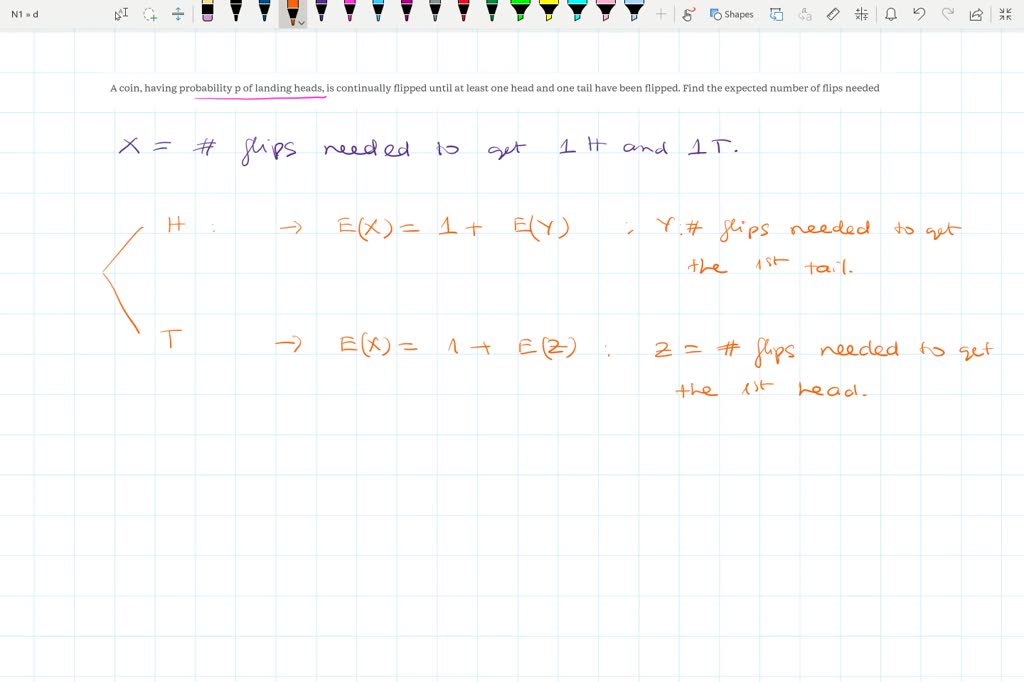 N1 » d
Shapes
A coin, having probability p of landing heads, is continually flipped until at least one head and one tail have been flipped. Find the expected number of flips needed
X = # flips needed to get 1 H and 1 T.
H : → E(X) = 1 + E(Y) ; Y: # flips needed to get
the 1st tail.
T → E(X) = 1 + E(Z) : Z = # flips needed to get
the 1st head.